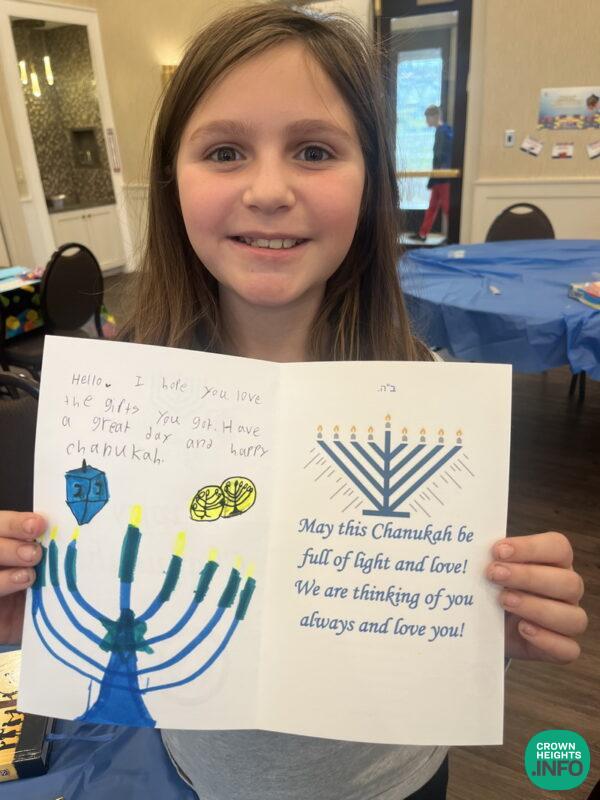 Hello. I hope you love
the gifts you got. Have
a great day and happy
chanukah.
ב"ה.
May this Chanukah be
full of light and love!
We are thinking of you
always and love you!
CROWN
HEIGHTS
.INFO